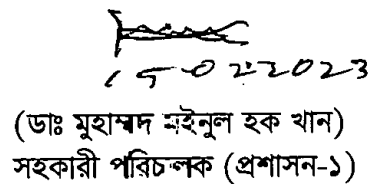 15022023
(ডাঃ মুহাম্মদ মইনুল হক খান)
সহকারী পরিচালক (প্রশাসন-১)